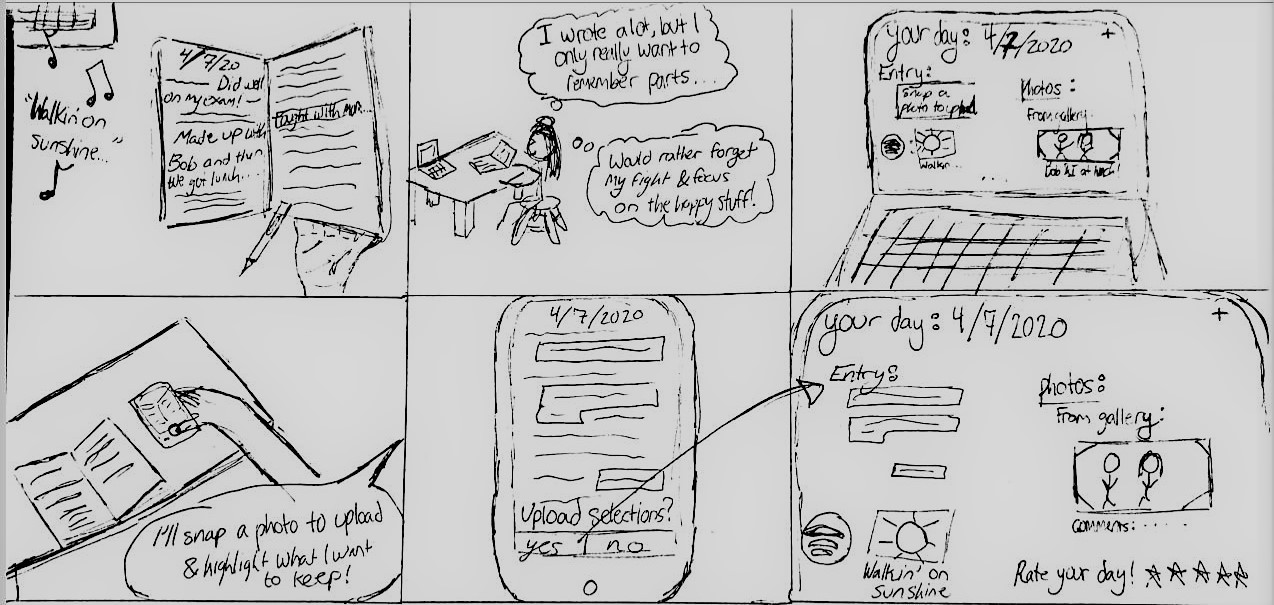 "Walkin' on
Sunshine..."
4/7/20
Did well
on my exam!
Made up with
Bob and then
we got lunch...
Fought with Mom...
I wrote a lot, but I
only really want to
remember parts...
Would rather forget
my fight & focus
on the happy stuff!
your day: 4/7/2020 +
Entry:
Snap a
photo to upload
Walkin...
Photos:
From gallery:
Bob & I at lunch!
...
I'll snap a photo to upload
& highlight what I want
to keep!
4/7/2020
Upload selections?
yes no
your day: 4/7/2020 +
Entry:
Walkin' on
Sunshine
photos:
From gallery:
Comments: .....
Rate your day!